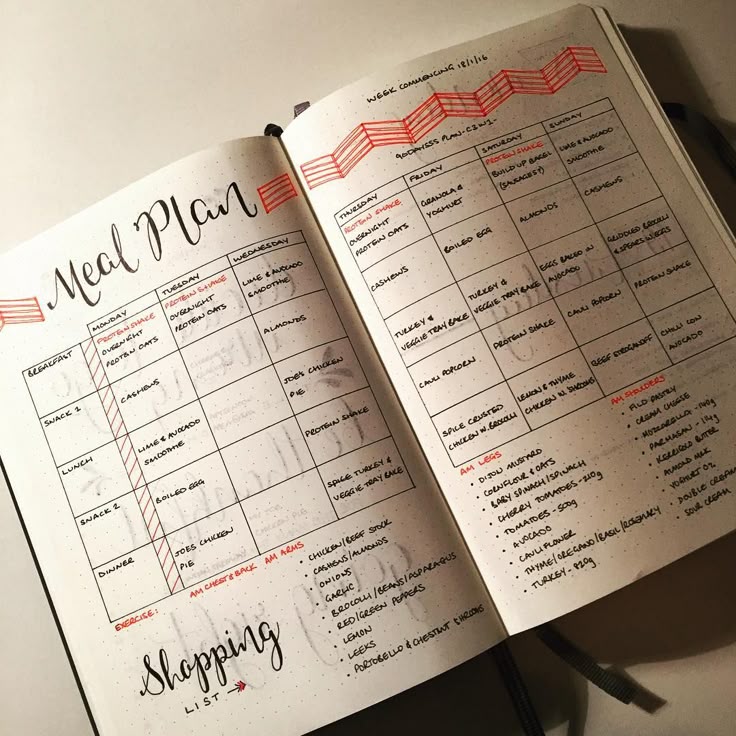 Meal Plan
MONDAY
TUESDAY
WEDNESDAY
BREAKFAST
PROTEIN SHAKE
OVERNIGHT
PROTEIN OATS
PROTEIN SHAKE
OVERNIGHT
PROTEIN OATS
LIME & AVOCADO
SMOOTHIE
SNACK 1
CASHEWS
ALMONDS
LUNCH
LIME & AVOCADO
SMOOTHIE
JOE'S CHICKEN
PIE
SNACK 2
BOILED EGG
PROTEIN SHAKE
DINNER
JOES CHICKEN
PIE
SPICE TURKEY &
VEGGIE TRAY BAKE
EXERCISE:
AM CHEST & BACK
AM ARMS
Shopping
LIST
• CHICKEN/BEEF STOCK
• CASHEWS/ALMONDS
• ONIONS
• GARLIC
• BROCOLLI/BEANS/ASPARAGUS
• RED/GREEN PEPPERS
• LEMON
• LEEKS
• PORTOBELLO & CHESTNUT SHROOMS
WEEK COMMENCING 18/1/16
90DAYSSS PLAN - C2W2 -
THURSDAY
FRIDAY
SATURDAY
SUNDAY
PROTEIN SHAKE
OVERNIGHT
PROTEIN OATS
GRANOLA &
YOGHURT
PROTEIN SHAKE
BUILD UP BAGEL
(SAUSAGES?)
LIME & AVOCADO
SMOOTHIE
CASHEWS
BOILED EGG
ALMONDS
CASHEWS
TURKEY &
VEGGIE TRAY BAKE
TURKEY &
VEGGIE TRAY BAKE
EGGS BAKED IN
AVOCADO
GRIDDLED BROCOLLI
CAULI POPCORN
PROTEIN SHAKE
CAULI POPCORN
PROTEIN SHAKE
SPICE CRUSTED
CHICKEN W. BROCOLLI
LEMON & THYME
CHICKEN W. SHROOMS
BEEF STROGANOFF
CHILLI CON
AVOCADO
AM LEGS
AM SHOULDERS
• DIJON MUSTARD
• CORNFLOUR & OATS
• BABY SPINACH/SPINACH
• CHERRY TOMATOES - 210g
• TOMATOES - 500g
• AVOCADO
• CAULIFLOWER
• THYME/OREGANO/BASIL/ROSEMARY
• TURKEY - 820g
• FILO PASTRY
• CREAM CHEESE
• MOZZARELLA - 140g
• PARMASAN - 14g
• KERRIGOLD BUTTER
• ALMOND MILK
• YOGHURT OZ
• DOUBLE CREAM
• SOUR CREAM